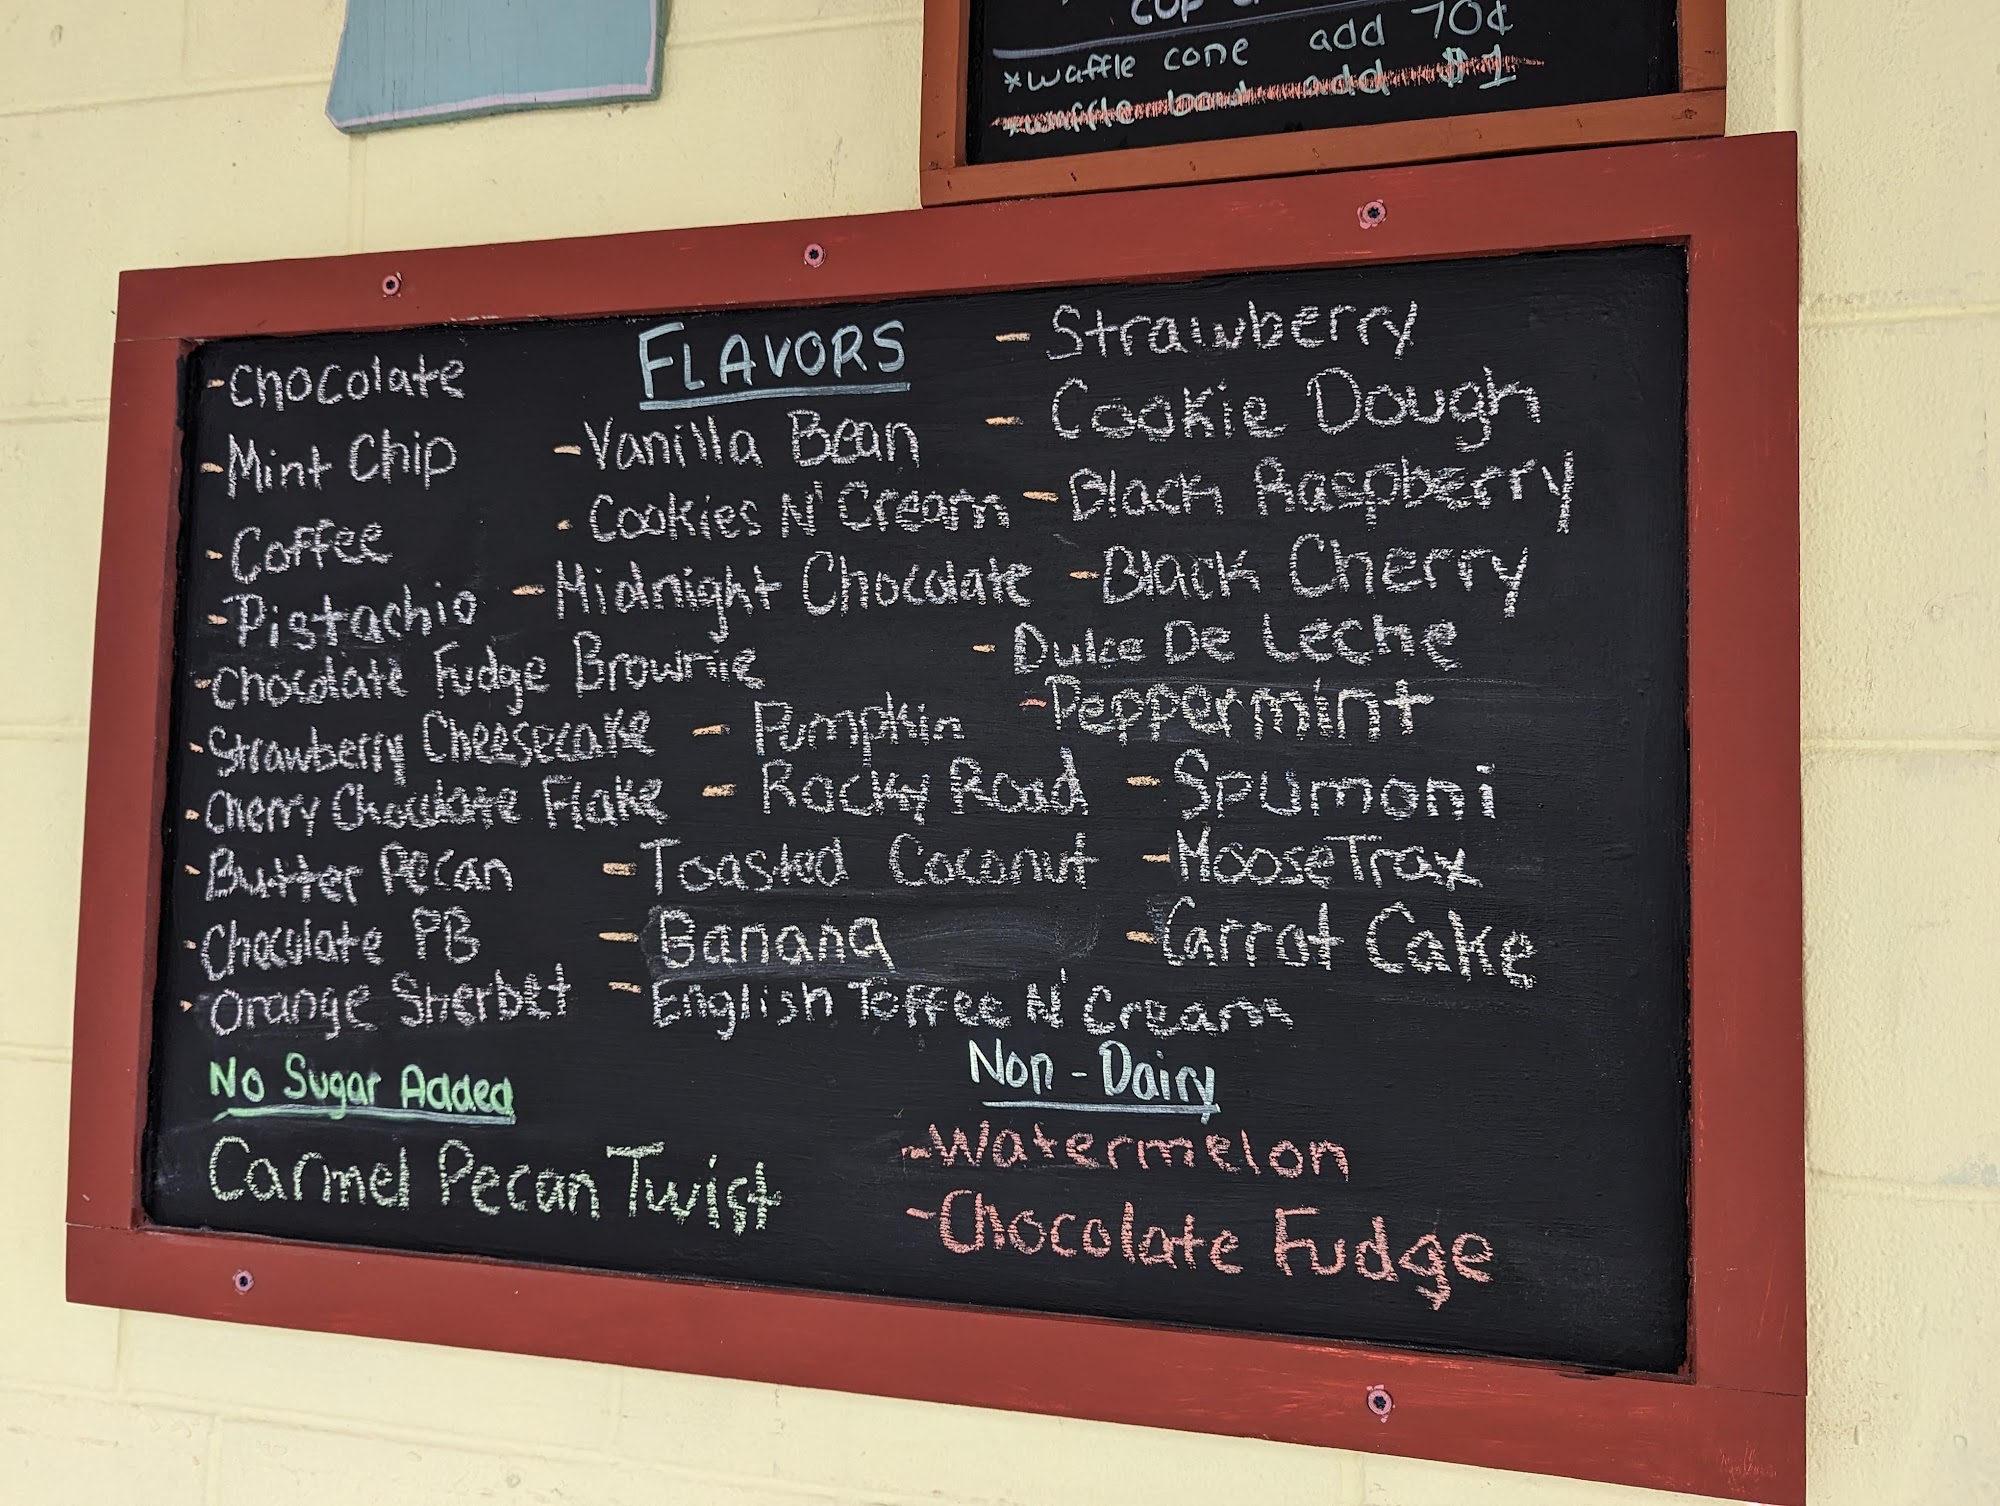 *waffle cone add 70¢
*waffle bowl add $1
FLAVORS
-Chocolate
-Mint Chip
-Coffee
-Pistachio
-Chocolate Fudge Brownie
-Strawberry Cheesecake
-Cherry Chocolate Flake
-Butter Pecan
-Chocolate PB
-Orange Sherbet
-Vanilla Bean
-Cookies N' Cream
-Midnight Chocolate
-Pumpkin
-Rocky Road
-Toasted Coconut
-Banana
-English Toffee N' Cream
-Strawberry
-Cookie Dough
-Black Raspberry
-Black Cherry
-Dulce De Leche
-Peppermint
-Spumoni
-MooseTrax
-Carrot Cake
No Sugar Added
Carmel Pecan Twist
Non-Dairy
-Watermelon
-Chocolate Fudge